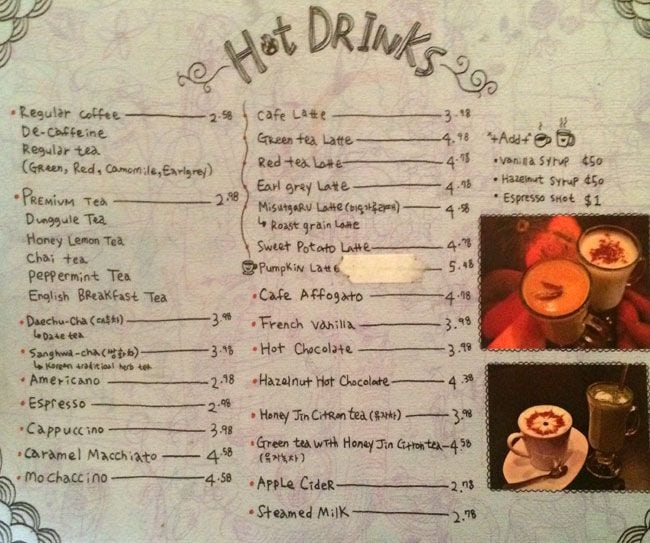 Hot DRINKS
Regular coffee 2.58
De-caffeine
Regular tea
(Green, Red, Camomile, Earlgrey)
Premium Tea 2.98
Dunggule Tea
Honey Lemon Tea
Chai tea
Peppermint Tea
English Breakfast Tea
Daechu-Cha (대추차) 3.98
↳ Date tea
Sanghwa-cha (쌍화차) 3.98
↳ Korean traditional herb tea
Americano 2.98
Espresso 2.98
Cappuccino 3.98
Caramel Macchiato 4.58
Mochaccino 4.58
Cafe Latte 3.98
Green tea Latte 4.98
Red tea Latte 4.78
Earl grey Latte 4.78
Misutgaru Latte (미숫가루라떼) 4.58
↳ Roast grain Latte
Sweet Potato Latte 4.78
Pumpkin Latte 5.48
Cafe Affogato 4.78
French Vanilla 3.98
Hot Chocolate 3.98
Hazelnut Hot Chocolate 4.38
Honey Jin Citron tea (유자차) 3.98
Green tea with Honey Jin Citron tea 4.58
(유자녹차)
Apple Cider 2.78
Steamed Milk 2.78
*+Add+*
• Vanilla Syrup ¢50
• Hazelnut Syrup ¢50
• Espresso Shot $1